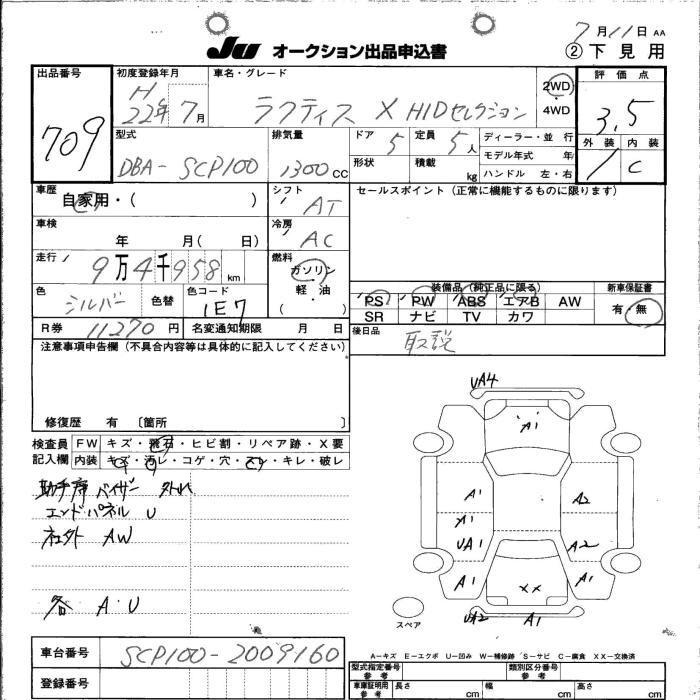 7月11日 AA
JU オークション出品申込書
② 下見用
出品番号
709
初度登録年月
H 22年 7月
車名・グレード
ラクティス X HIDセレクション
2WD
4WD
評価点
3.5
外装 内装
C
型式
DBA-SCP100
排気量
1300 cc
ドア 5
定員 5人
ディーラー・並行
モデル年式 年
形状
積載 kg
ハンドル 左・右
車歴
自家用・( )
シフト
AT
セールスポイント(正常に機能するものに限ります)
車検
年 月( 日)
冷房
AC
走行
9万4千958km
燃料
ガソリン
軽・油
( )
色
シルバー
色替
色コード
1E7
装備品(純正品に限る)
PS PW ABS エアB AW
SR ナビ TV カワ
新車保証書
有・無
R券 11270円
名変通知期限 月 日
後日品
取説
注意事項申告欄(不具合内容等は具体的に記入してください)
修復歴 有 〔箇所 〕
検査員記入欄
FW キズ・飛石・ヒビ割・リペア跡・X要
内装 キズ・汚レ・コゲ・穴・スレ・キレ・破レ
助手席 バイザー 外れ
エンドパネル U
社外 AW
各 A・U
UA4
A1
A1
A1
UA1
A1
A2
A2
A1
XX
UA2
A1
スペア
A－キズ E－エクボ U－凹み W－補修跡 S－サビ C－腐食 XX－交換済
車台番号
SCP100-2009160
登録番号
型式指定番号 参考
類別区分番号 参考
車庫証明用 参考
長さ cm
幅 cm
高さ cm